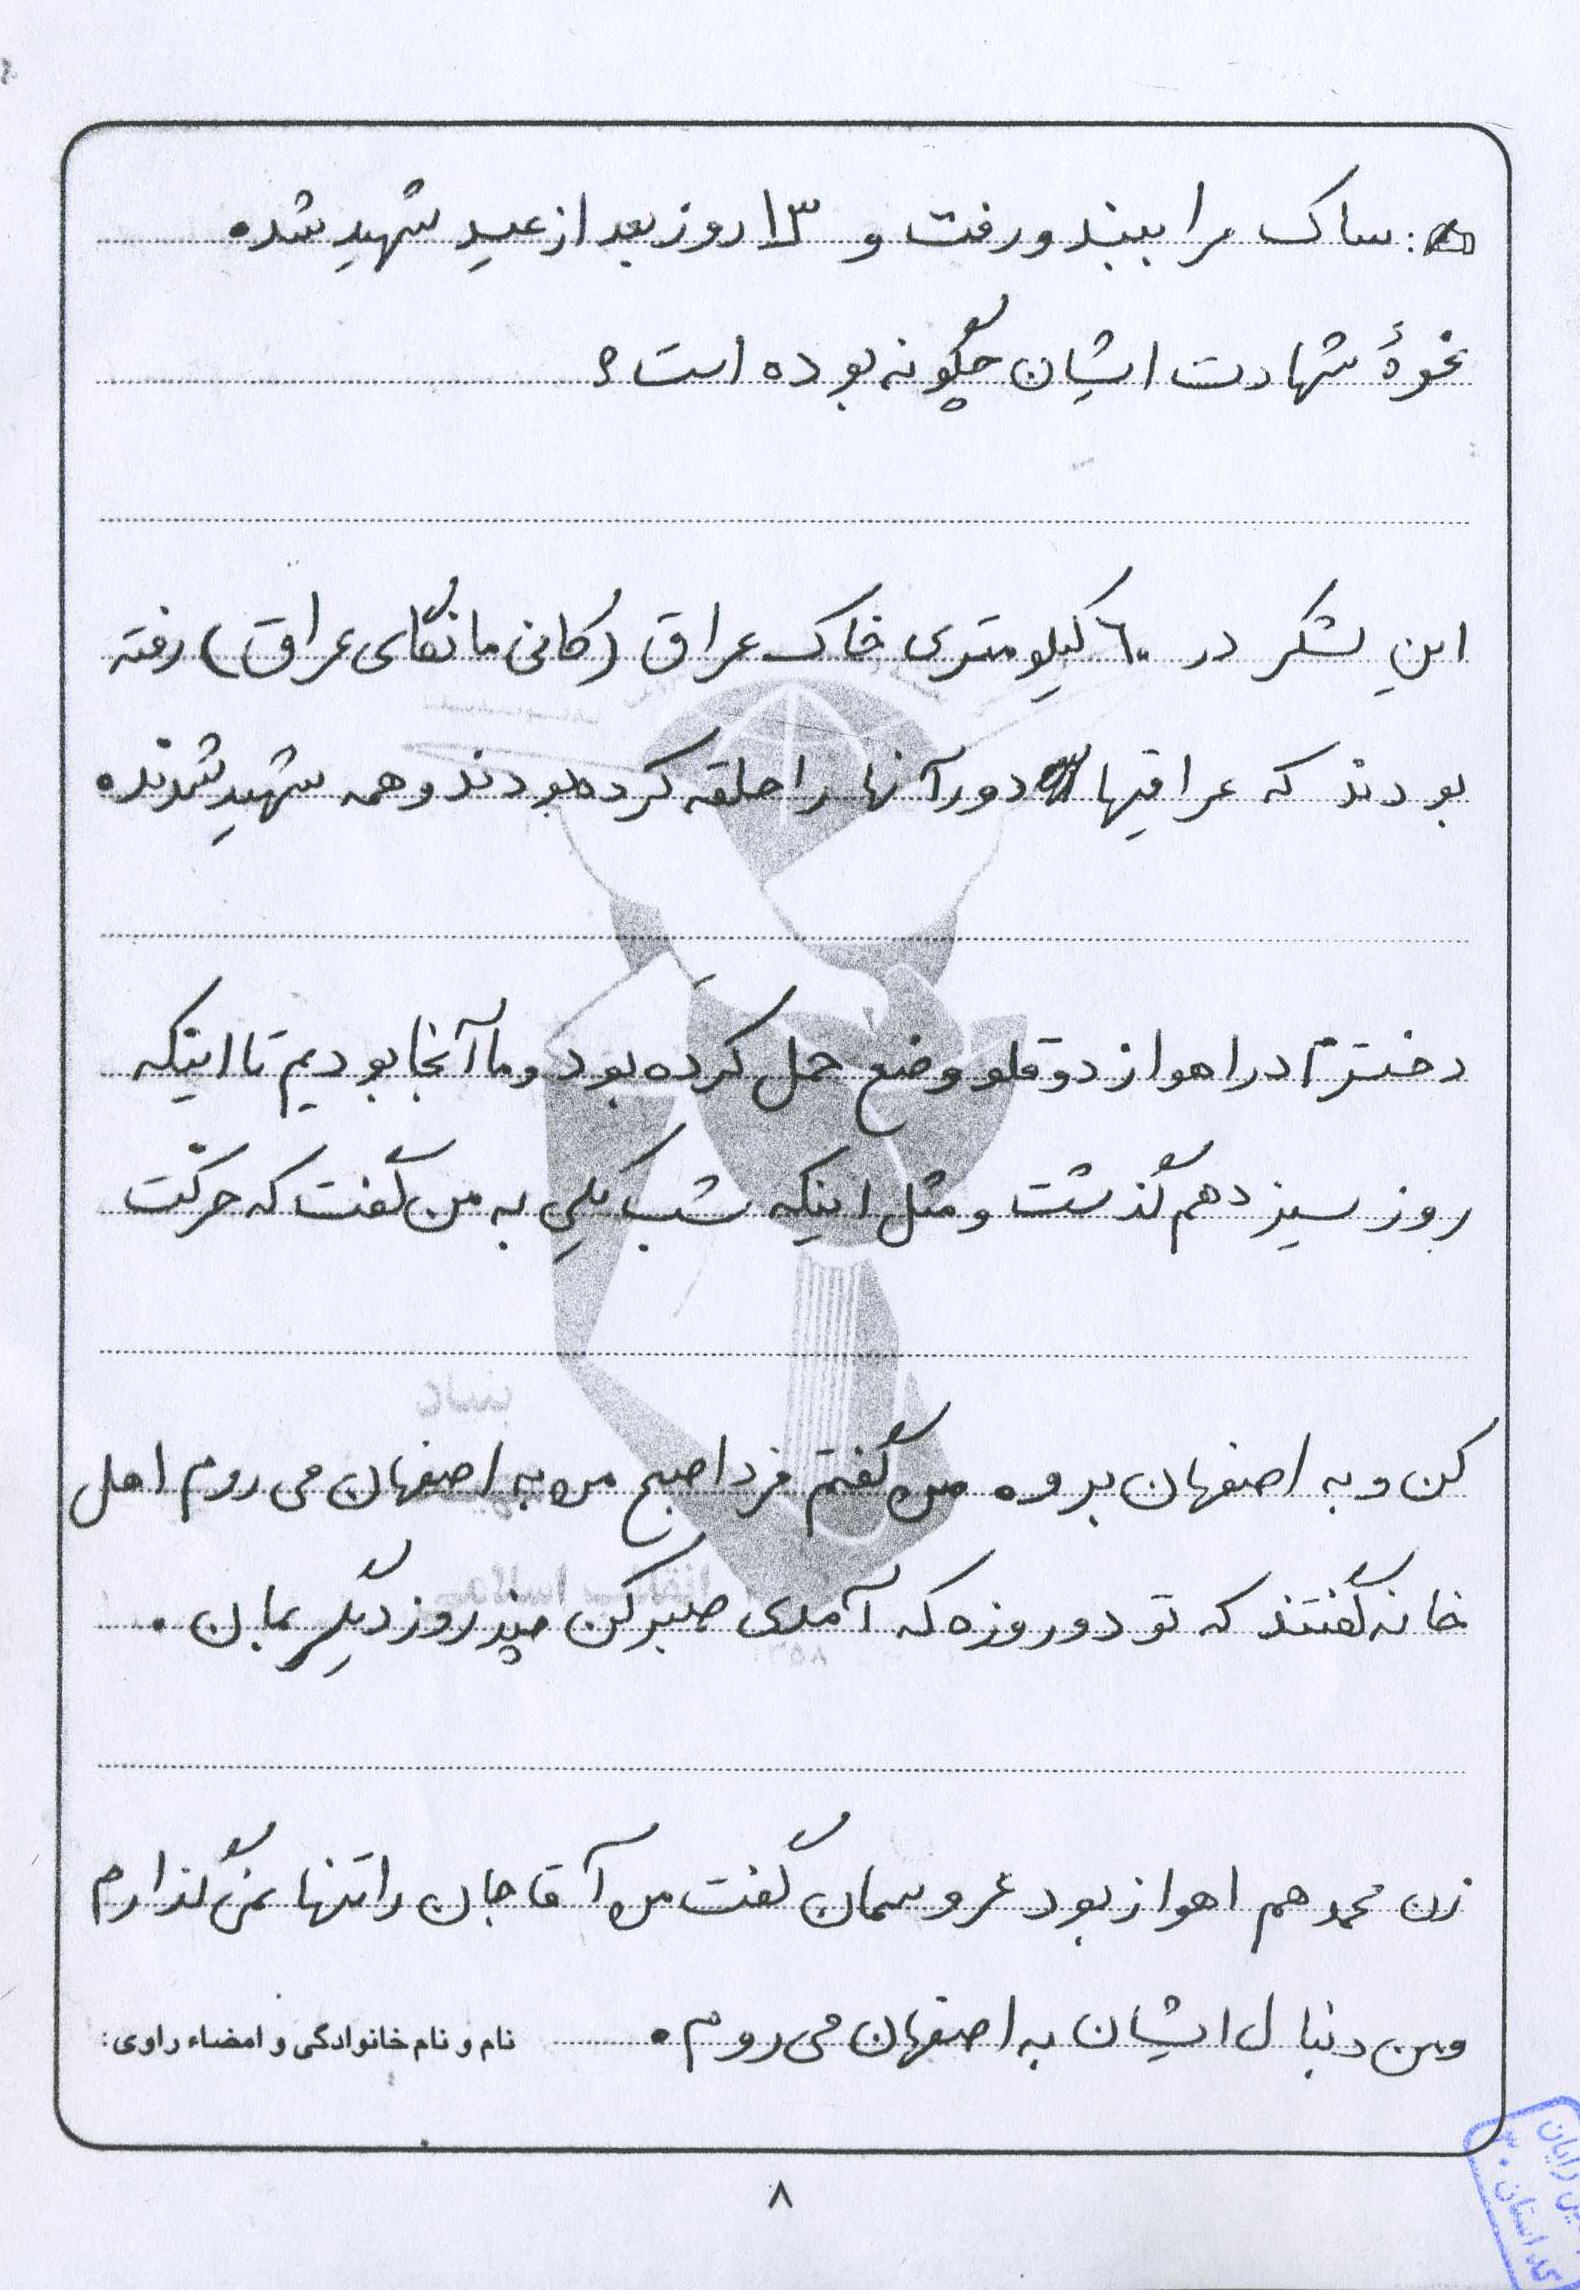 : ساک را ببندو رفت و ۱۳ روز بعد از عید شهید شده
نحوهٔ شهادت ایشان چگونه بوده است؟
این لشکر در ۶۰ کیلومتری خاک عراق (کانی مانگای عراق) رفته
بودند که عراقیها دور آنها را حلقه کرده بودند و همه شهید شدند
دخترم در اهواز دوقلو وضع حمل کرده بود و ما آنجا بودیم تا اینکه
روز سیزدهم گذشت و مثل اینکه شب یکی به من گفت که حرکت
کن و به اصفهان برو. من گفتم فردا صبح من به اصفهان می روم اهل
خانه گفتند که تو دو روزه که آمدی صبر کن چند روز دیگر بمان.
زن محمد هم اهواز بود عروسمان گفت من آقا جان را تنها نمی گذارم
ومن دنبال ایشان به اصفهان می روم.
نام و نام خانوادگی و امضاء راوی:
۸
بنیاد
رایان
کد استان ۳۰